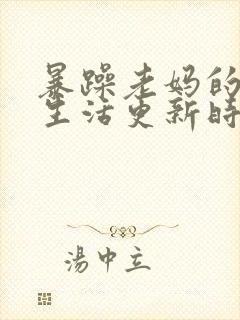 暴躁老妈的
生活更新时
湯中立